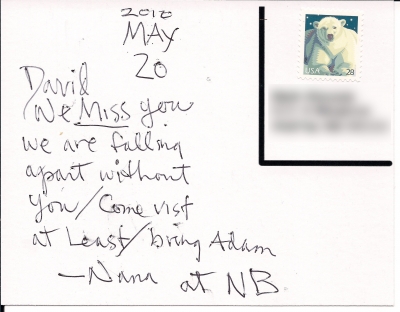 2010
MAY
20
David
We Miss you
we are falling
apart without
you/Come visit
at Least/bring Adam
—Nana at NB.
USA 28